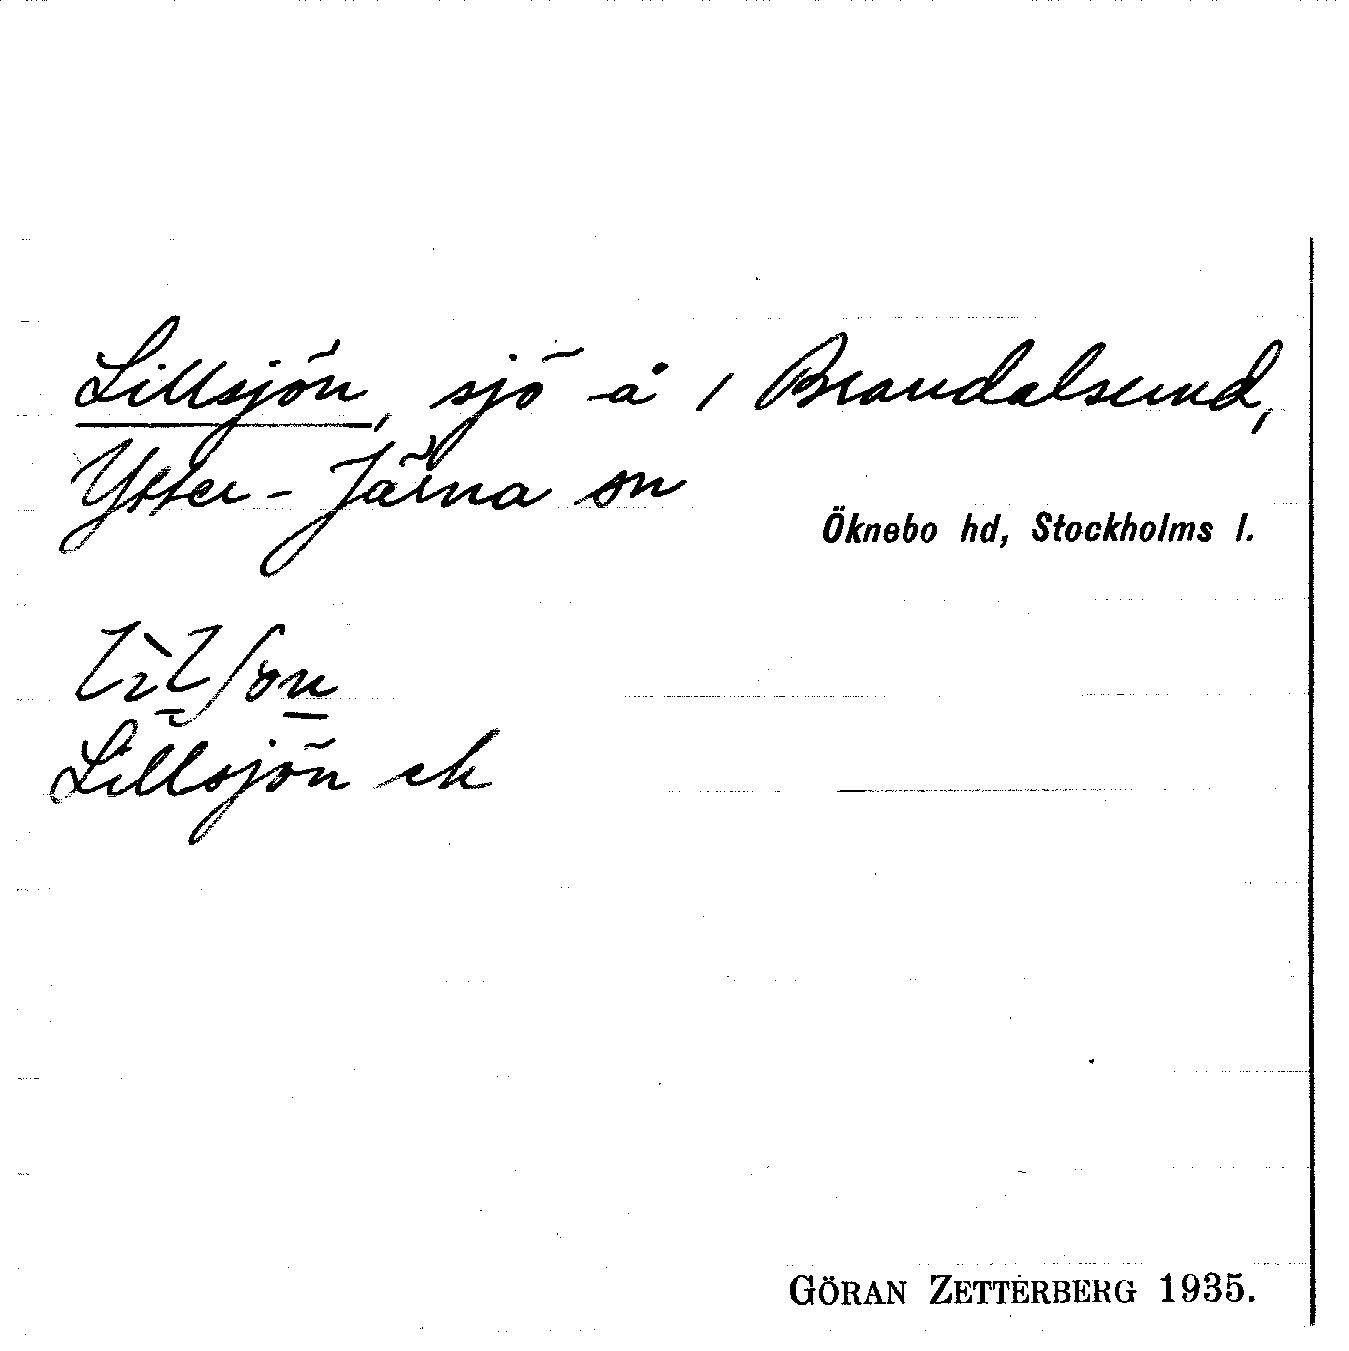 Lillsjön, sjö å / Brandalsund,
Ytter-Järna sn
Öknebo hd, Stockholms l.
Lillsjön ek
GÖRAN ZETTERBERG 1935.